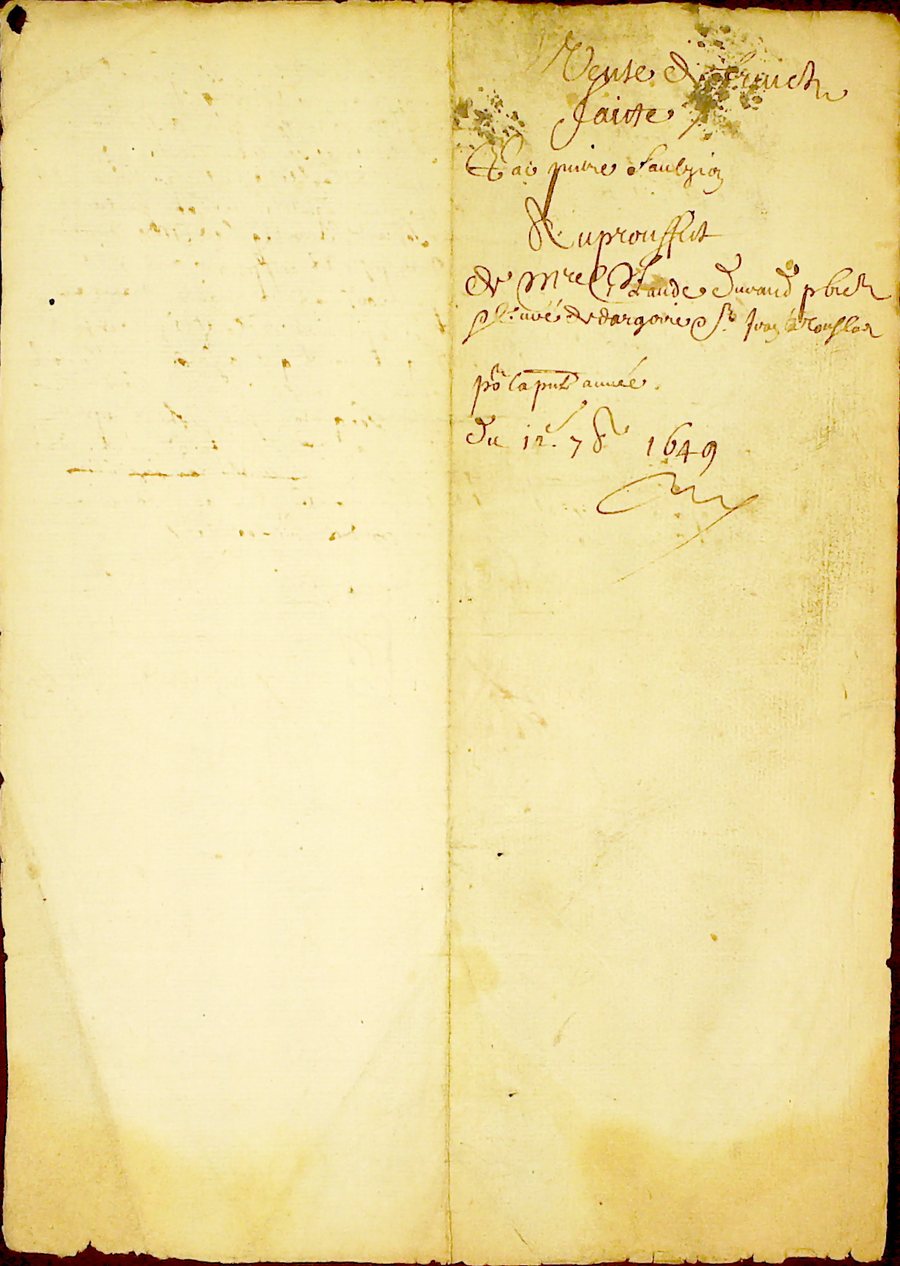 Vente de
faitte
Par pierre
Au prouffict
De Mre Claude Durand pbre
Curé de dargoire St Jean a Touslas
po la pnt année
Du 12e 7br 1649